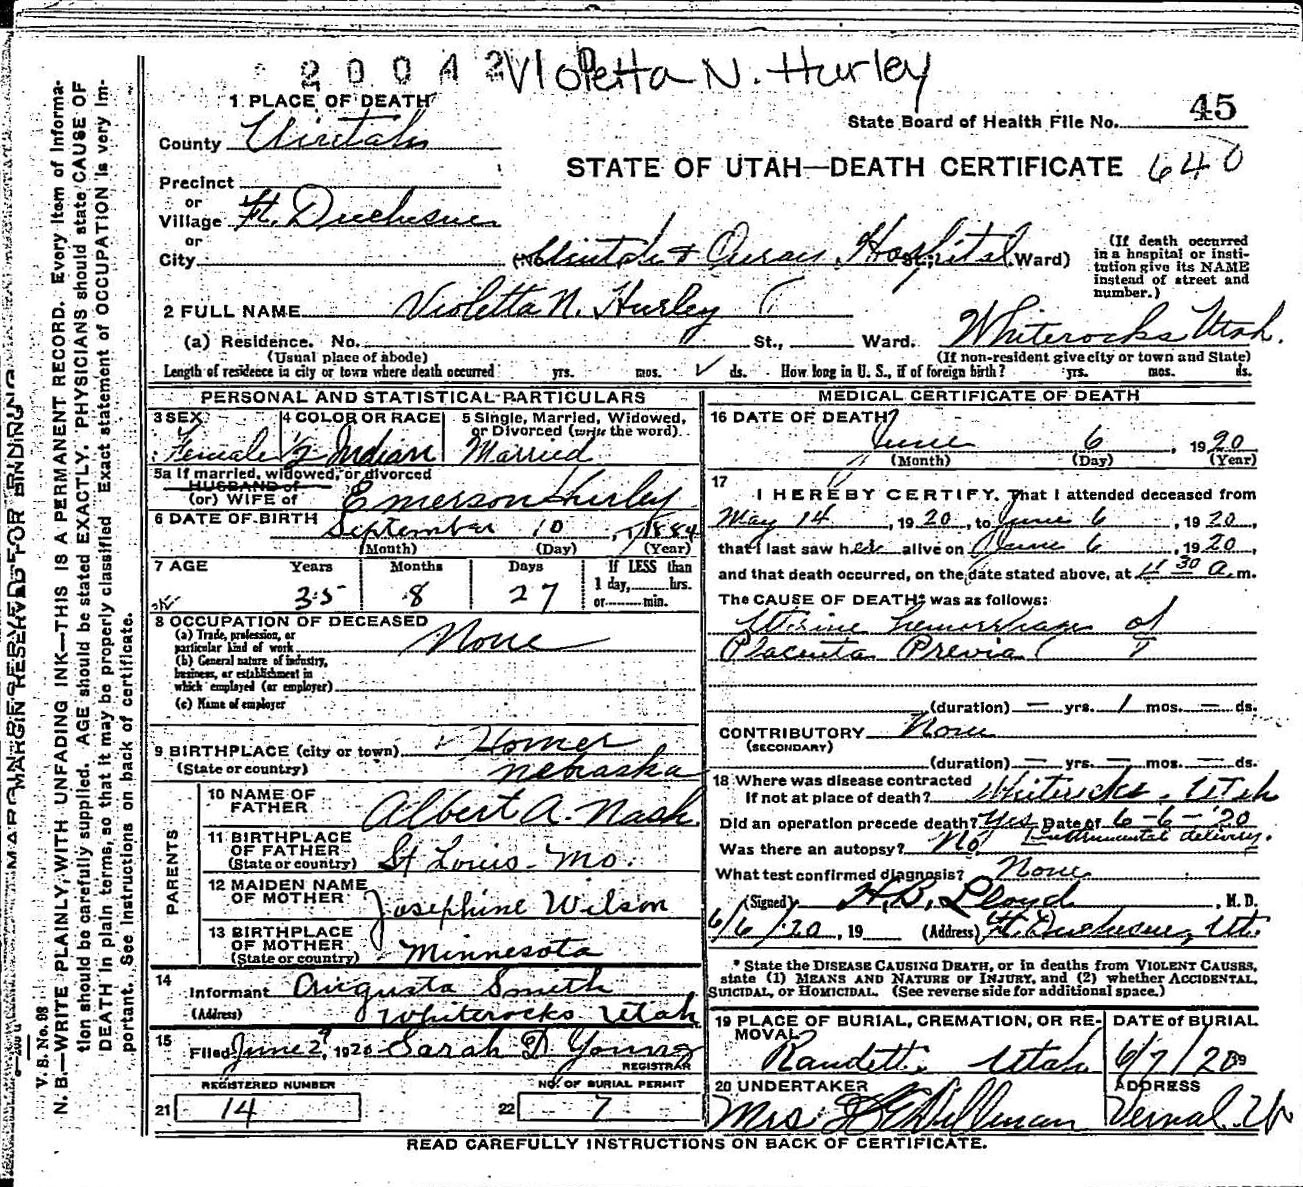 20042 Violetta N. Hurley
1 PLACE OF DEATH
45
State Board of Health File No.
County Uintah
STATE OF UTAH—DEATH CERTIFICATE 640
Precinct
or
Village Ft. Duchesne
or
City
(No. Uintah & Ouray Hospital St.; Ward)
(If death occurred
in a hospital or insti-
tution give its NAME
instead of street and
number.)
2 FULL NAME Violetta N. Hurley
(a) Residence. No. St., Ward. Whiterocks Utah.
(Usual place of abode)
(If non-resident give city or town and State)
Length of residence in city or town where death occurred yrs. mos. ds. How long in U. S., if of foreign birth? yrs. mos. ds.
PERSONAL AND STATISTICAL PARTICULARS
3 SEX
Female
4 COLOR OR RACE
1/2 Indian
5 Single, Married, Widowed,
or Divorced (write the word)
Married
5a If married, widowed, or divorced
HUSBAND of
(or) WIFE of Emerson Hurley
6 DATE OF BIRTH September 10, 1884
(Month) (Day) (Year)
7 AGE Years Months Days If LESS than
1 day, hrs.
or min.
35 8 27
8 OCCUPATION OF DECEASED
(a) Trade, profession, or
particular kind of work None
(b) General nature of industry,
business, or establishment in
which employed (or employer)
(c) Name of employer
9 BIRTHPLACE (city or town) Homer
(State or country) Nebraska
PARENTS
10 NAME OF
FATHER Albert A. Nash
11 BIRTHPLACE
OF FATHER
(State or country) St Louis - Mo.
12 MAIDEN NAME
OF MOTHER Josephine Wilson
13 BIRTHPLACE
OF MOTHER
(State or country) Minnesota
14
Informant Augusta Smith
(Address) Whiterocks Utah
15
Filed June 29, 1920 Sarah D Young
REGISTRAR
REGISTERED NUMBER NO. OF BURIAL PERMIT
21 14 22 7
MEDICAL CERTIFICATE OF DEATH
16 DATE OF DEATH
June 6, 1920
(Month) (Day) (Year)
17
I HEREBY CERTIFY, That I attended deceased from
May 14, 1920, to June 6, 1920,
that I last saw her alive on June 6, 1920,
and that death occurred, on the date stated above, at 11 30 a.m.
The CAUSE OF DEATH* was as follows:
Uterine hemorrhage of
Placenta Previa
(duration) — yrs. 1 mos. — ds.
CONTRIBUTORY None
(SECONDARY)
(duration) — yrs. — mos. — ds.
18 Where was disease contracted
If not at place of death? Whiterocks - Utah
Did an operation precede death? Yes Date of 6-6-'20
Instrumental delivery.
Was there an autopsy? No
What test confirmed diagnosis? None
(Signed) H.B. Lloyd, M.D.
6/6/20, 19 (Address) Ft. Duchesne, Ut.
* State the DISEASE CAUSING DEATH, or in deaths from VIOLENT CAUSES,
state (1) MEANS AND NATURE OF INJURY, and (2) whether ACCIDENTAL,
SUICIDAL, or HOMICIDAL. (See reverse side for additional space.)
19 PLACE OF BURIAL, CREMATION, OR RE-
MOVAL
Randett Utah
DATE of BURIAL
6/7/20 19
20 UNDERTAKER
Mrs Dillman
ADDRESS
Vernal, Ut
READ CAREFULLY INSTRUCTIONS ON BACK OF CERTIFICATE.
MARGIN RESERVED FOR BINDING
V. S. No. 98
N. B.—WRITE PLAINLY, WITH UNFADING INK—THIS IS A PERMANENT RECORD. Every item of informa-
tion should be carefully supplied. AGE should be stated EXACTLY. PHYSICIANS should state CAUSE OF
DEATH in plain terms, so that it may be properly classified. Exact statement of OCCUPATION is very im-
portant. See instructions on back of certificate.